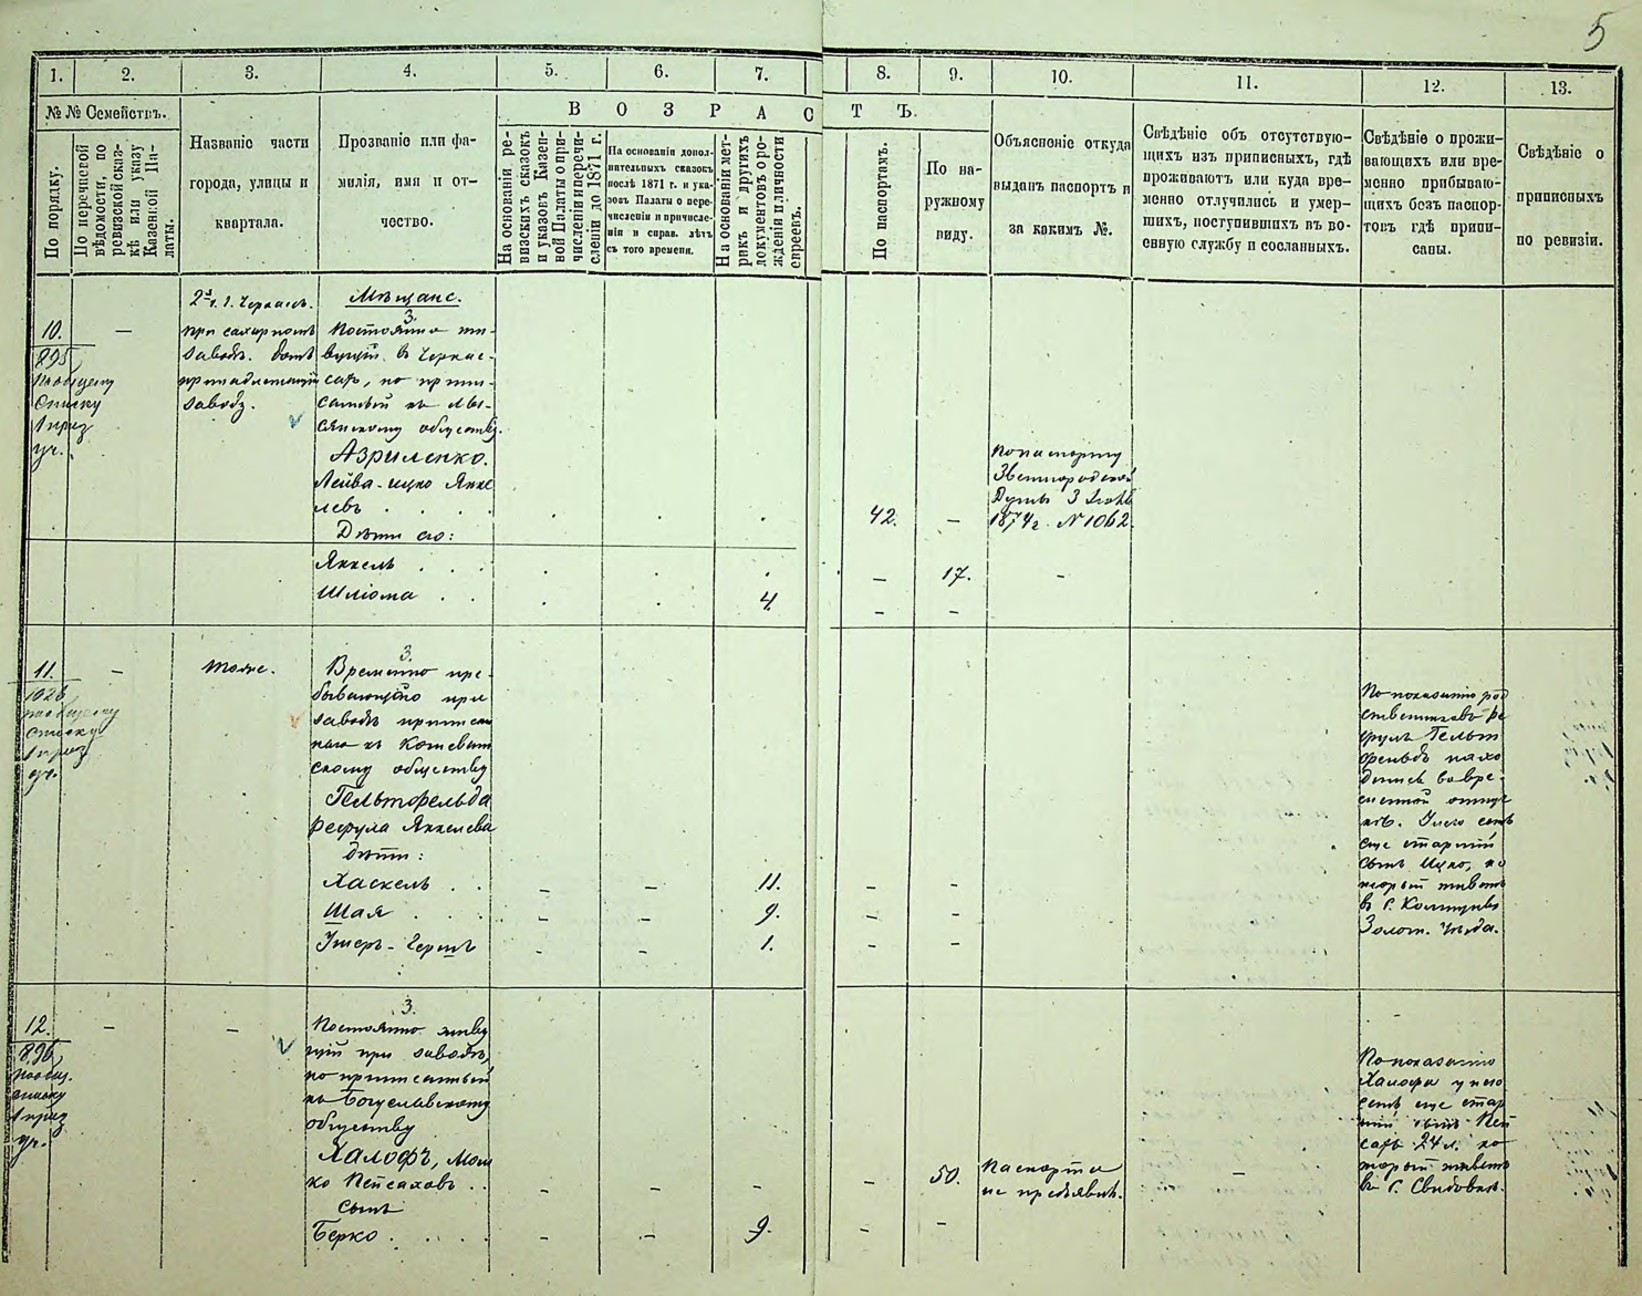 5
1. 2. 3. 4. 5. 6. 7. 8. 9. 10. 11. 12. 13.
№ № Семействъ.
По порядку.
По перечневой
вѣдомости, по
ревизской сказ-
кѣ или указу
Казенной Па-
латы.
Названіе части
города, улицы и
квартала.
Прозваніе или фа-
милія, имя и от-
чество.
ВОЗРАСТЪ.
На основаніи ре-
визскихъ сказокъ
и указовъ Казен-
ной Палаты о при-
численіи и перечи-
сленіи до 1871 г.
На основаніи допол-
нительныхъ сказокъ
послѣ 1871 г. и ука-
зовъ Палаты о пере-
численіи и причисле-
ніи и справ. лѣтъ
съ того времени.
На основаніи мет-
рикъ и другихъ
документовъ о ро-
жденіи и личности
евреевъ.
По паспортамъ.
По на-
ружному
виду.
Объясненіе откуда
выданъ паспортъ и
за какимъ №.
Свѣдѣніе объ отсутствую-
щихъ изъ приписныхъ, гдѣ
проживаютъ или куда вре-
менно отлучились и умер-
шихъ, поступившихъ въ во-
енную службу и сосланныхъ.
Свѣдѣніе о прожи-
вающихъ или вре-
менно прибываю-
щихъ безъ паспор-
товъ гдѣ припи-
саны.
Свѣдѣніе о
приписныхъ
по ревизіи.
10. —
895
по общему
списку
1 приз
уч.
при сахарномъ
заводѣ. домъ
принадлежащій
заводу.
Мѣщане.
3.
Постоянно жи-
вущій въ Черкас-
сахъ, но припи-
санный къ Лы-
сянскому обществу.
Азриленко.
Лейба-ицко Янке
левъ . . . . . . 42. —
По паспорту
Звенигородской
Думы 3 Июня
1874 г. № 1062.
Дѣти его:
Янкель . . . . . . — 17. —
Шліома . . . . 4. — —
11. —
1028
по общему
списку
1 приз
уч.
тоже.
3.
Временно пре-
бывающаго при
заводѣ приписан
наго къ Кошеват
скому обществу
Гельтфельда
Рефула Янкелева
дѣти:
Хаскель . . — — 11. — —
Шая . . . — — 9. — —
Ушеръ-Гершъ — — 1. — —
По показанію род
ственниковъ Ре
фулъ Гельт
фельдъ нахо
дится во вре-
менной отлуч
кѣ. У него есть
еще старшій
сынъ Ицко, ко
торый живетъ
Золот. уѣзда.
12. — —
896
по общ.
списку
1 приз
уч.
3.
Постоянно живу
щій при заводѣ,
но приписанный
къ Богуславскому
обществу
Халофъ, Мош
ко Пейсаховъ . . — — — — 50.
Паспорта
не предъявилъ.
—
сынъ
Берко . . . . — — 9. — —
По показанію
Халофа у него
есть еще стар
шій сынъ Пей
сахъ 24 л. ко
торый живетъ
въ с. Свидовкѣ.